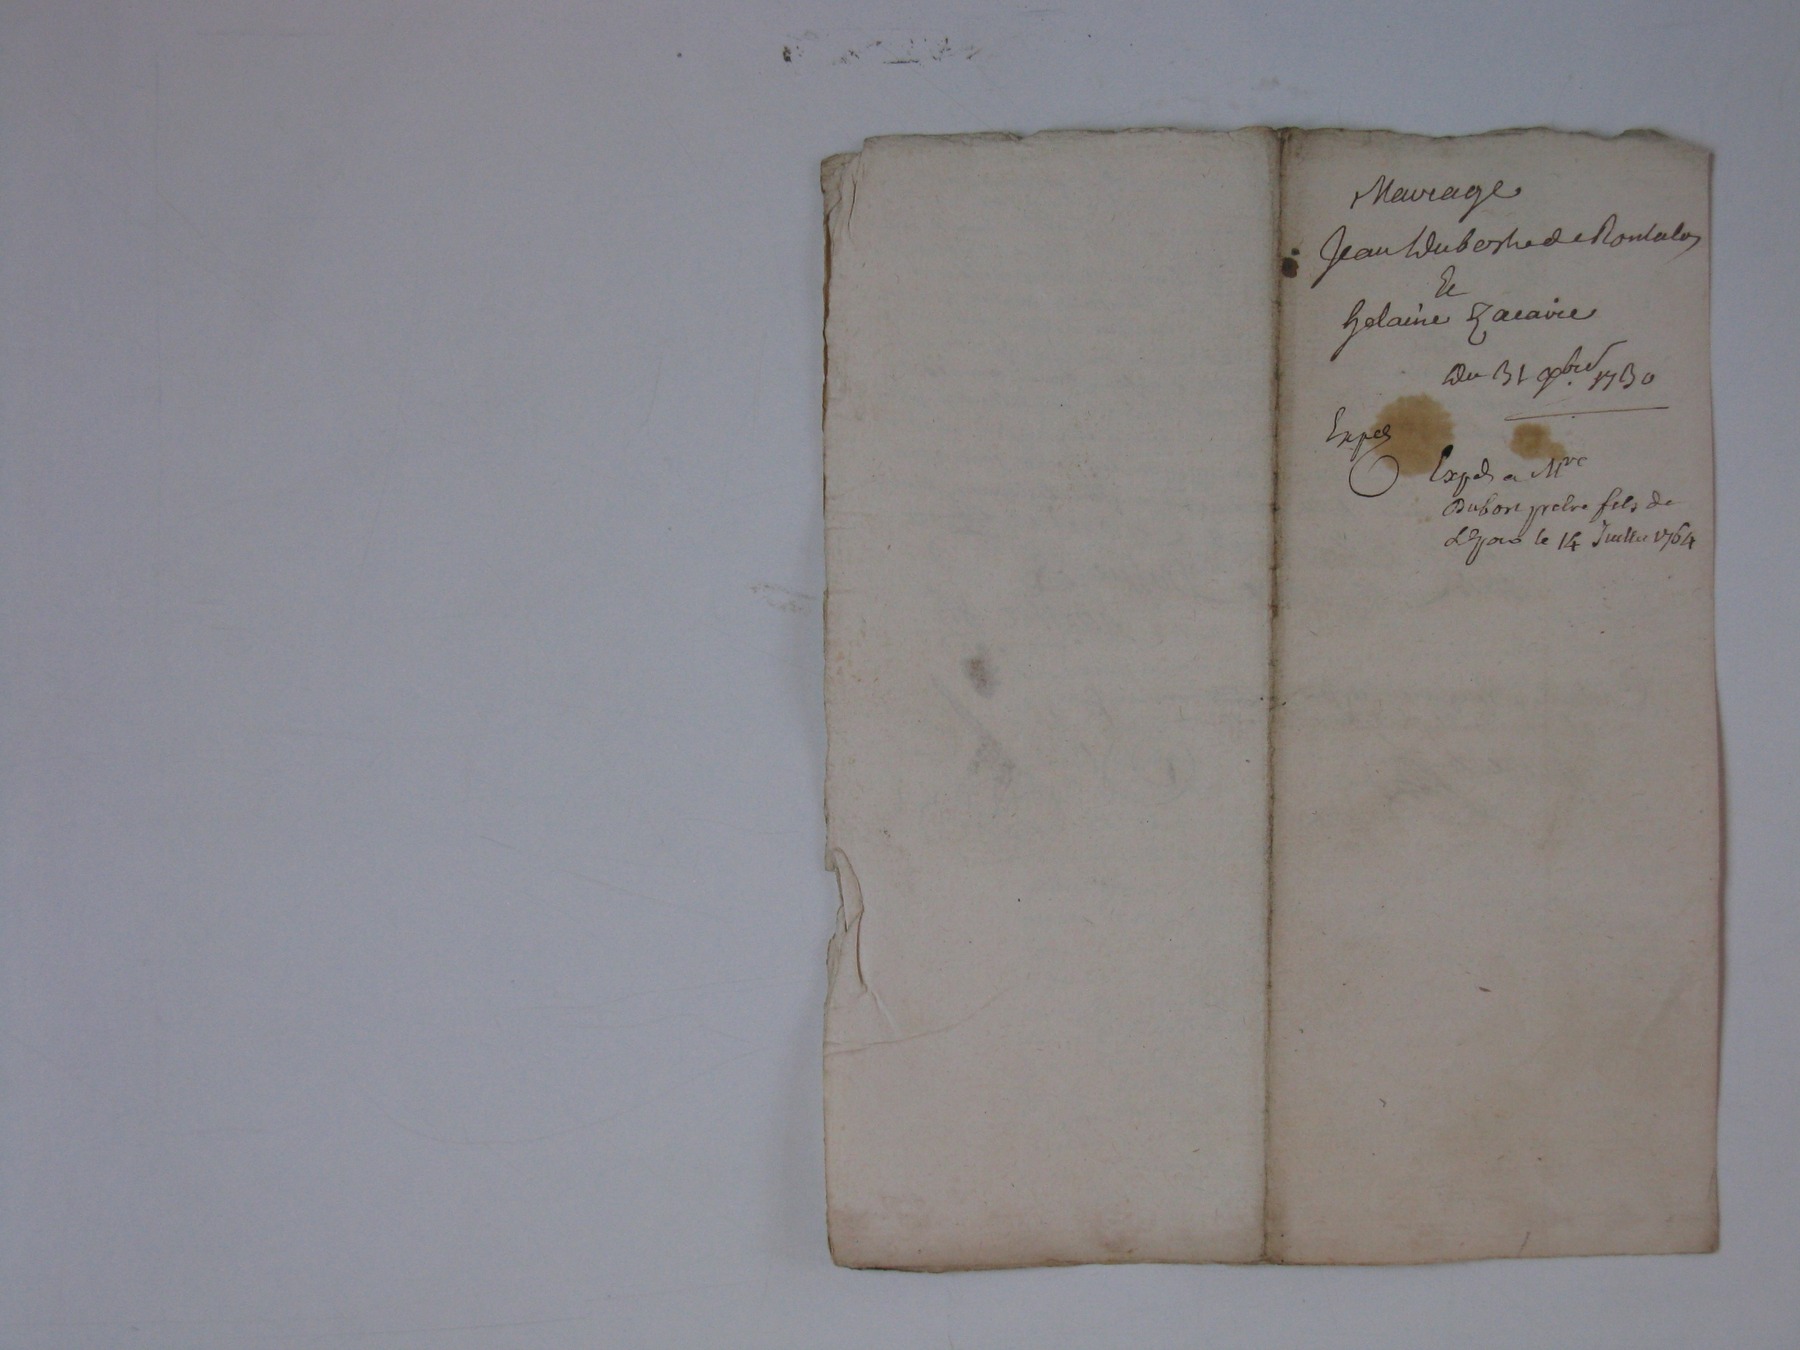 Mariage
Jean Dubost de Rontalon
Et
Helaine Zacarie
Du 31 xbre 1730
Exped
Exped a Mre
Dubost pretre fils de
le 14 Juillet 1764